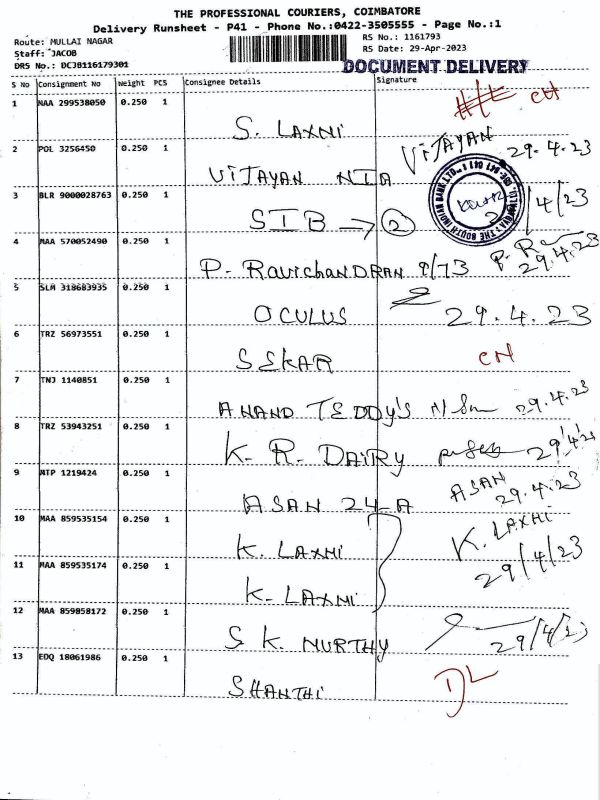 THE PROFESSIONAL COURIERS, COIMBATORE
Delivery Runsheet - P41 - Phone No.:0422-3505555 - Page No.:1
Route: MULLAI NAGAR RS No.: 1161793
Staff: JACOB RS Date: 29-Apr-2023
DRS No.: DCJB116179301 DOCUMENT DELIVERY
S No Consignment No Weight PCS Consignee Details Signature
1 MAA 299538050 0.250 1 CH
S. LAXMI
2 POL 3256450 0.250 1 VIJAYAN 29.4.23
VIJAYAN NIA
3 BLR 9000028763 0.250 1 /4/23
SIB → 2
4 MAA 570052490 0.250 1 P. R 29.4.23
P. RAVICHANDRAN 9/73
5 SLM 318683935 0.250 1
OCULUS 29.4.23
6 TRZ 56973551 0.250 1
SEKAR CN
7 TNJ 1140851 0.250 1
ANAND TEDDY'S 29.4.23
8 TRZ 53943251 0.250 1
K. R. DAIRY 29/4/23
9 MTP 1219424 0.250 1 ASAN 29.4.23
ASAN 24-A
10 MAA 859535154 0.250 1 K. LAXMI
K. LAXMI
11 MAA 859535174 0.250 1 29/4/23
K. LAXMI
12 MAA 859858172 0.250 1
S K. MURTHY 29/4/23
13 EDQ 18061986 0.250 1 DL
SHANTHI